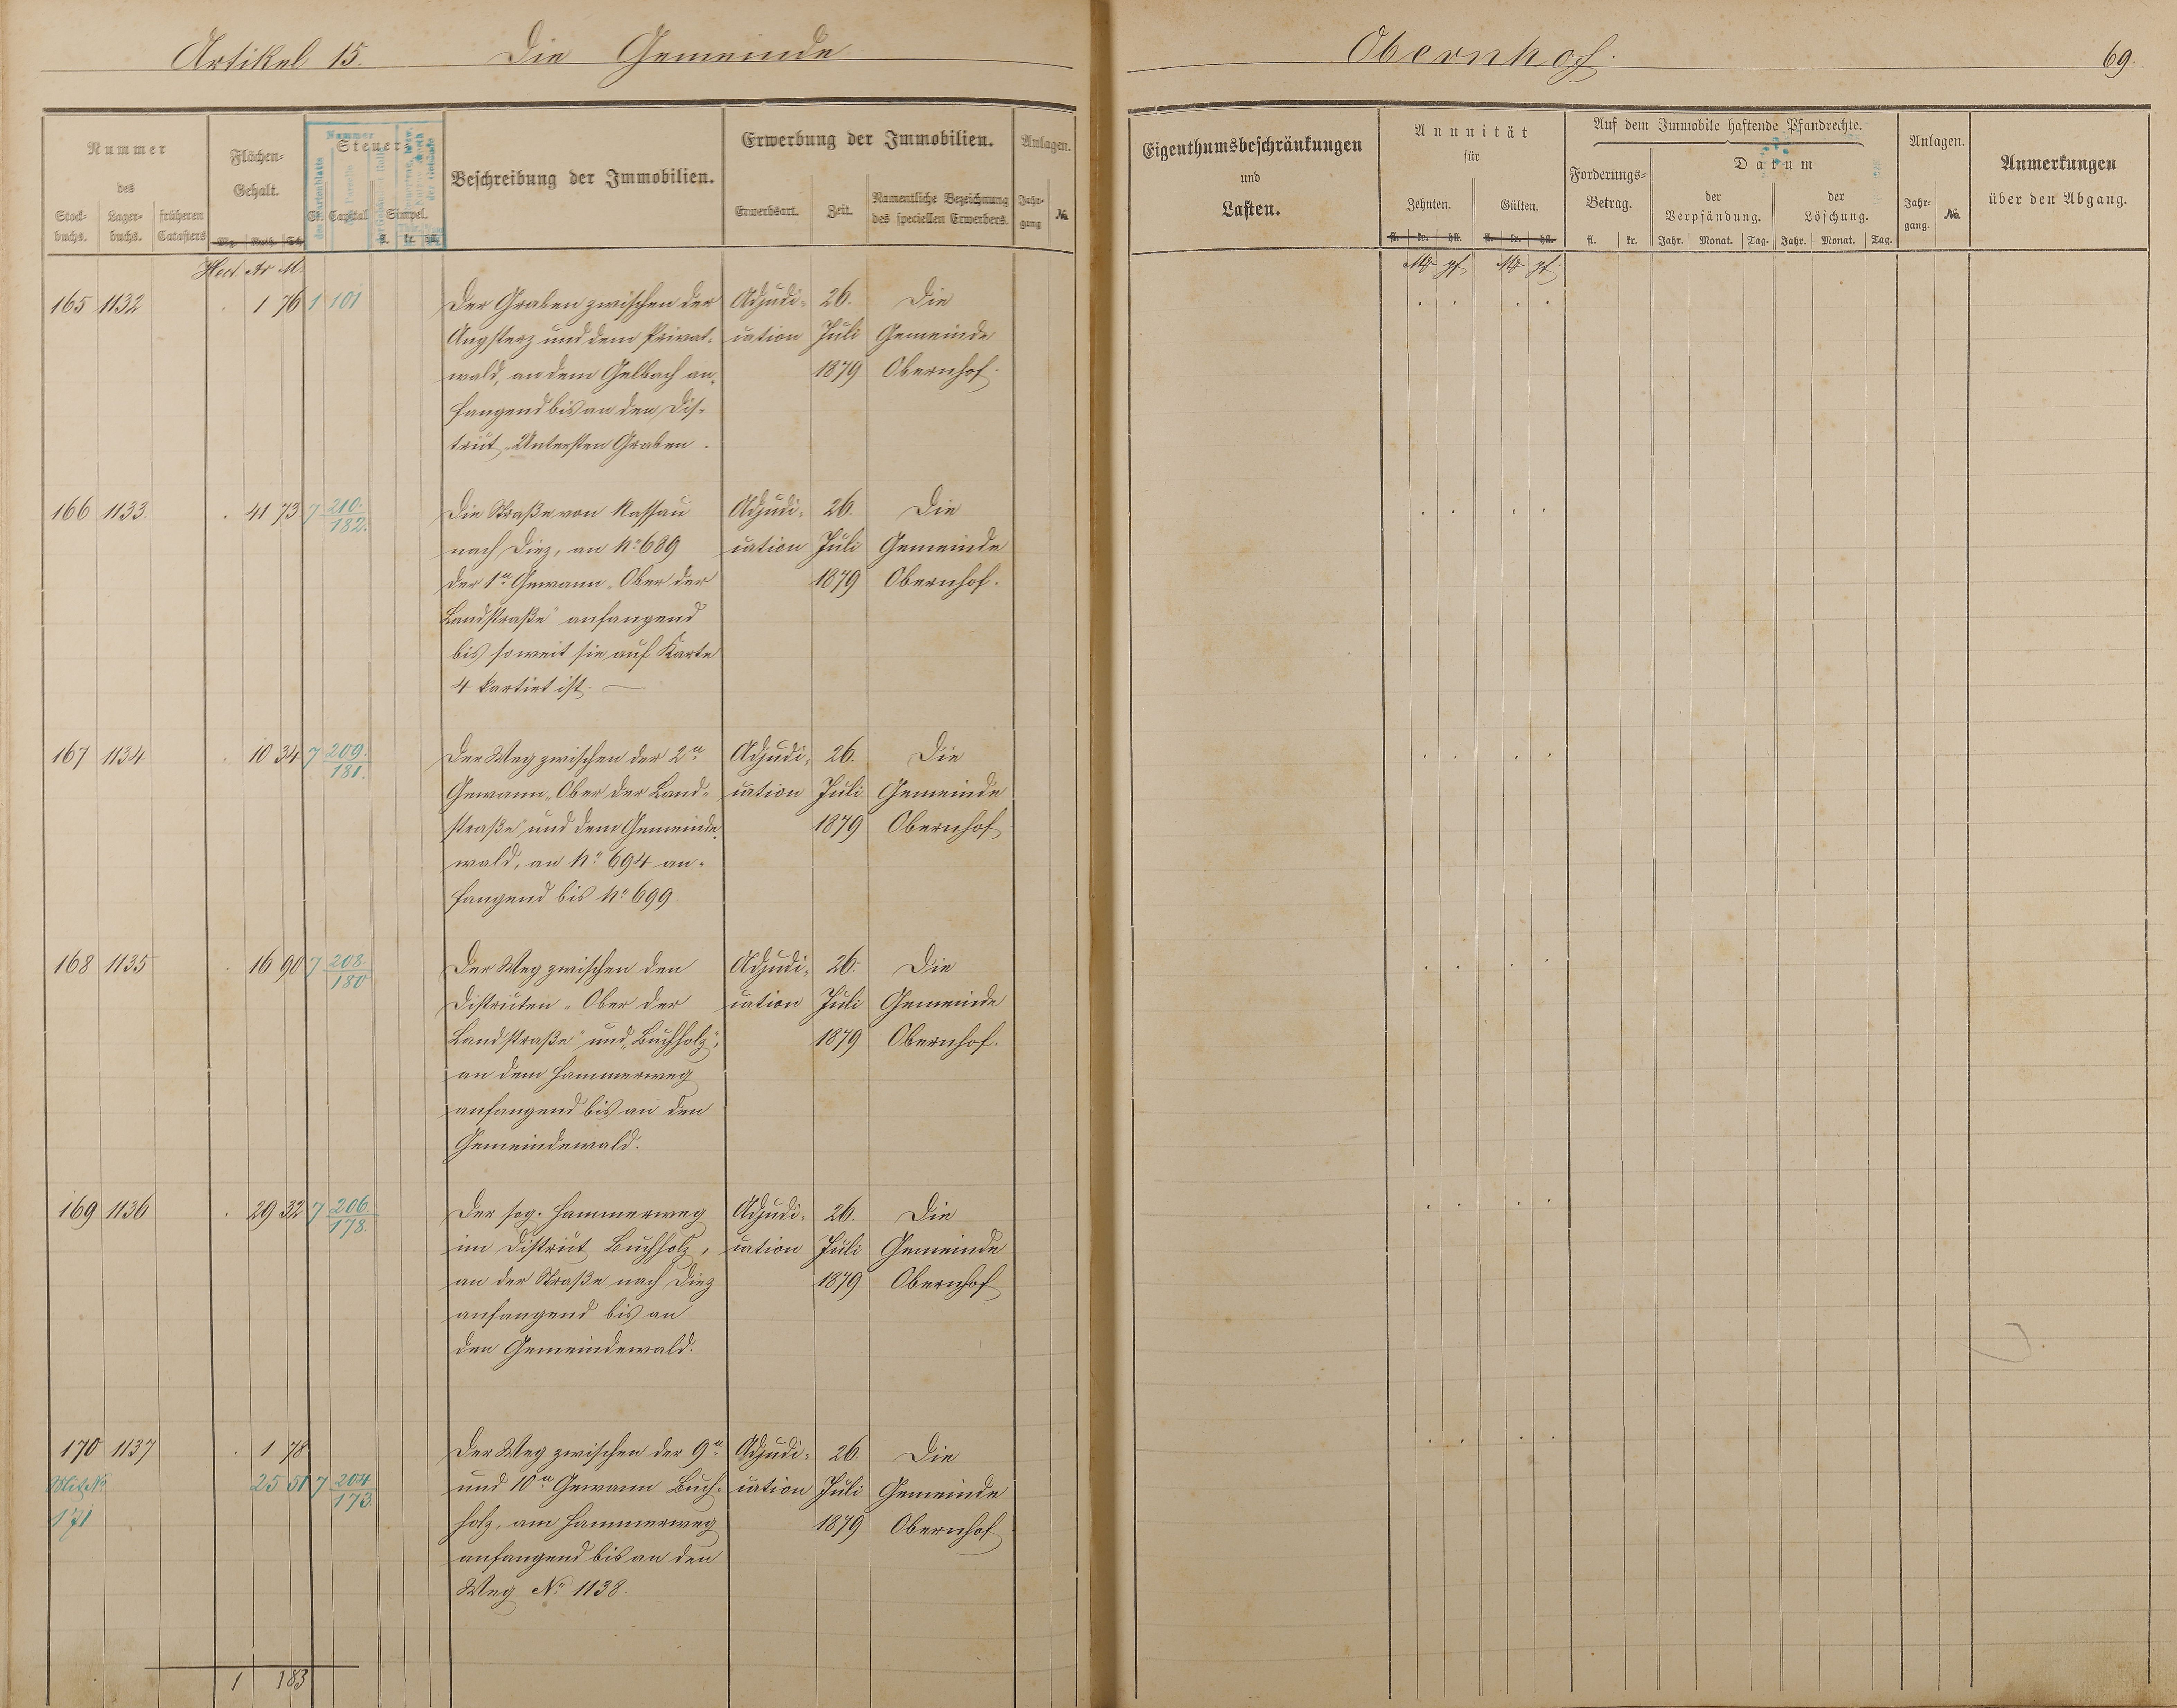 Artikel 15. Die Gemeinde
Obernhof. 69.
Nummer
des
Stock-buchs. Lager-buchs. früheren Catasters
Flächen-Gehalt.
Steuer-
Capital Simpel.
fl. kr. hll.
Nummer
des Kartenblatts
Beschreibung der Immobilien.
Erwerbung der Immobilien.
Erwerbsart. Zeit. Namentliche Bezeichnung des speciellen Erwerbers.
Anlagen.
Jahr-gang №
Eigenthumsbeschränkungen
und
Lasten.
Annuität
für
Zehnten. Gülten.
fl. kr. hll. fl. kr. hll.
Auf dem Immobile haftende Pfandrechte.
Forderungs-Betrag.
fl. kr.
Datum
der Verpfändung. der Löschung.
Jahr. Monat. Tag. Jahr. Monat. Tag.
Anlagen.
Jahr-gang. No.
Anmerkungen
über den Abgang.
Hect. Ar M.
Mk pf Mk pf
165 1132 . 1 76 1 101 Der Graben zwischen der Adjudi- 26. Die
Augsterz und dem Privat- cation Juli Gemeinde
wald, an dem Gelbach an- 1879 Obernhof.
fangend bis an den Dis-
trict Untersten Graben.
166 1133 . 41 73 7 210. Die Straße von Nassau Adjudi- 26. Die
182.
nach Diez, an No 689 cation Juli Gemeinde
der 1n Gewann "Ober der 1879 Obernhof.
Landstraße" anfangend
bis soweit sie auf Karte
4 kartiet ist. —
167 1134 . 10 34 7 209. Der Weg zwischen der 2n Adjudi- 26. Die
181.
Gewann "Ober der Land- cation Juli Gemeinde
straße" und dem Gemeinde- 1879 Obernhof
wald, an No 694 an-
fangend bis No 699.
168 1135 . 16 90 7 208. Der Weg zwischen den Adjudi- 26. Die
180
Districten "Ober der cation Juli Gemeinde
Landstraße" und "Buchholz", 1879 Obernhof.
an dem Hammerweg
anfangend bis an den
Gemeindewald.
169 1136 . 29 32 7 206. Der sog. Hammerweg Adjudi- 26. Die
178.
im District Buchholz, cation Juli Gemeinde
an der Straße nach Diez 1879 Obernhof
anfangend bis an
den Gemeindewald.
170 1137 . 1 78 Der Weg zwischen der 9n Adjudi- 26. Die
Mit No 25 51 7 204 und 10n Gewann Buch- cation Juli Gemeinde
173.
171 holz, am Hammerweg 1879 Obernhof
anfangend bis an den
Weg No 1138.
1 1 83